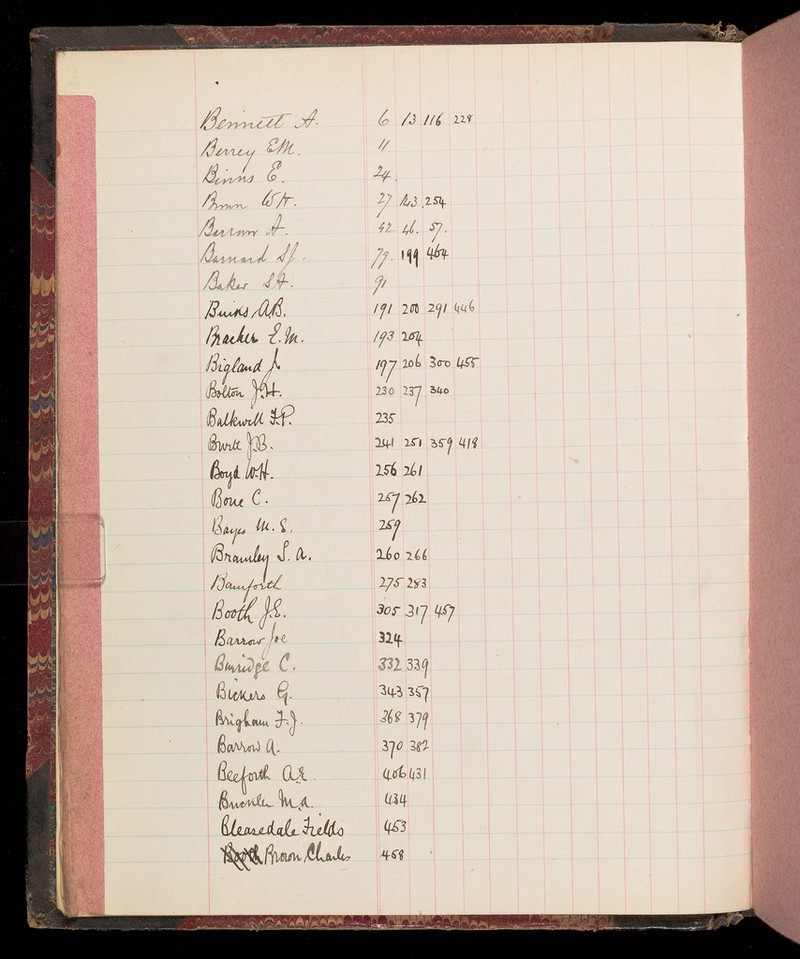 Bennett A. 6 13 116 228
Berrey E.M. 11
Binns E. 24.
Brown W.H. 27 143 .254
Barrow A. 42 46. 57.
Barnard S.J. 79. 199 464
Baker S.A. 91
Binks, A.B. 191 200 291 446
Bracher E.M. 193 204
Bigland J. 197 206 300 455
Bolton J.H. 230 237 340
Balkwill F.P. 235
Burtt J.B. 241 251 359 418
Boyd W.H. 256 261
Bone C. 257 262
Bayes M.S. 259
Bramley S.A. 260 266
Bamforth 275 283
Booth J.E. 305 317 457
Barrow Joe 324
Burridge C. 332 339
Bickers G. 343 357
Brigham F.J. 368 379
Barrow A. 370 382
Beeforth A.E. 406 431
Buckler M.A. 434
Bleasedale Fields 453
Booth Brown Charles 458